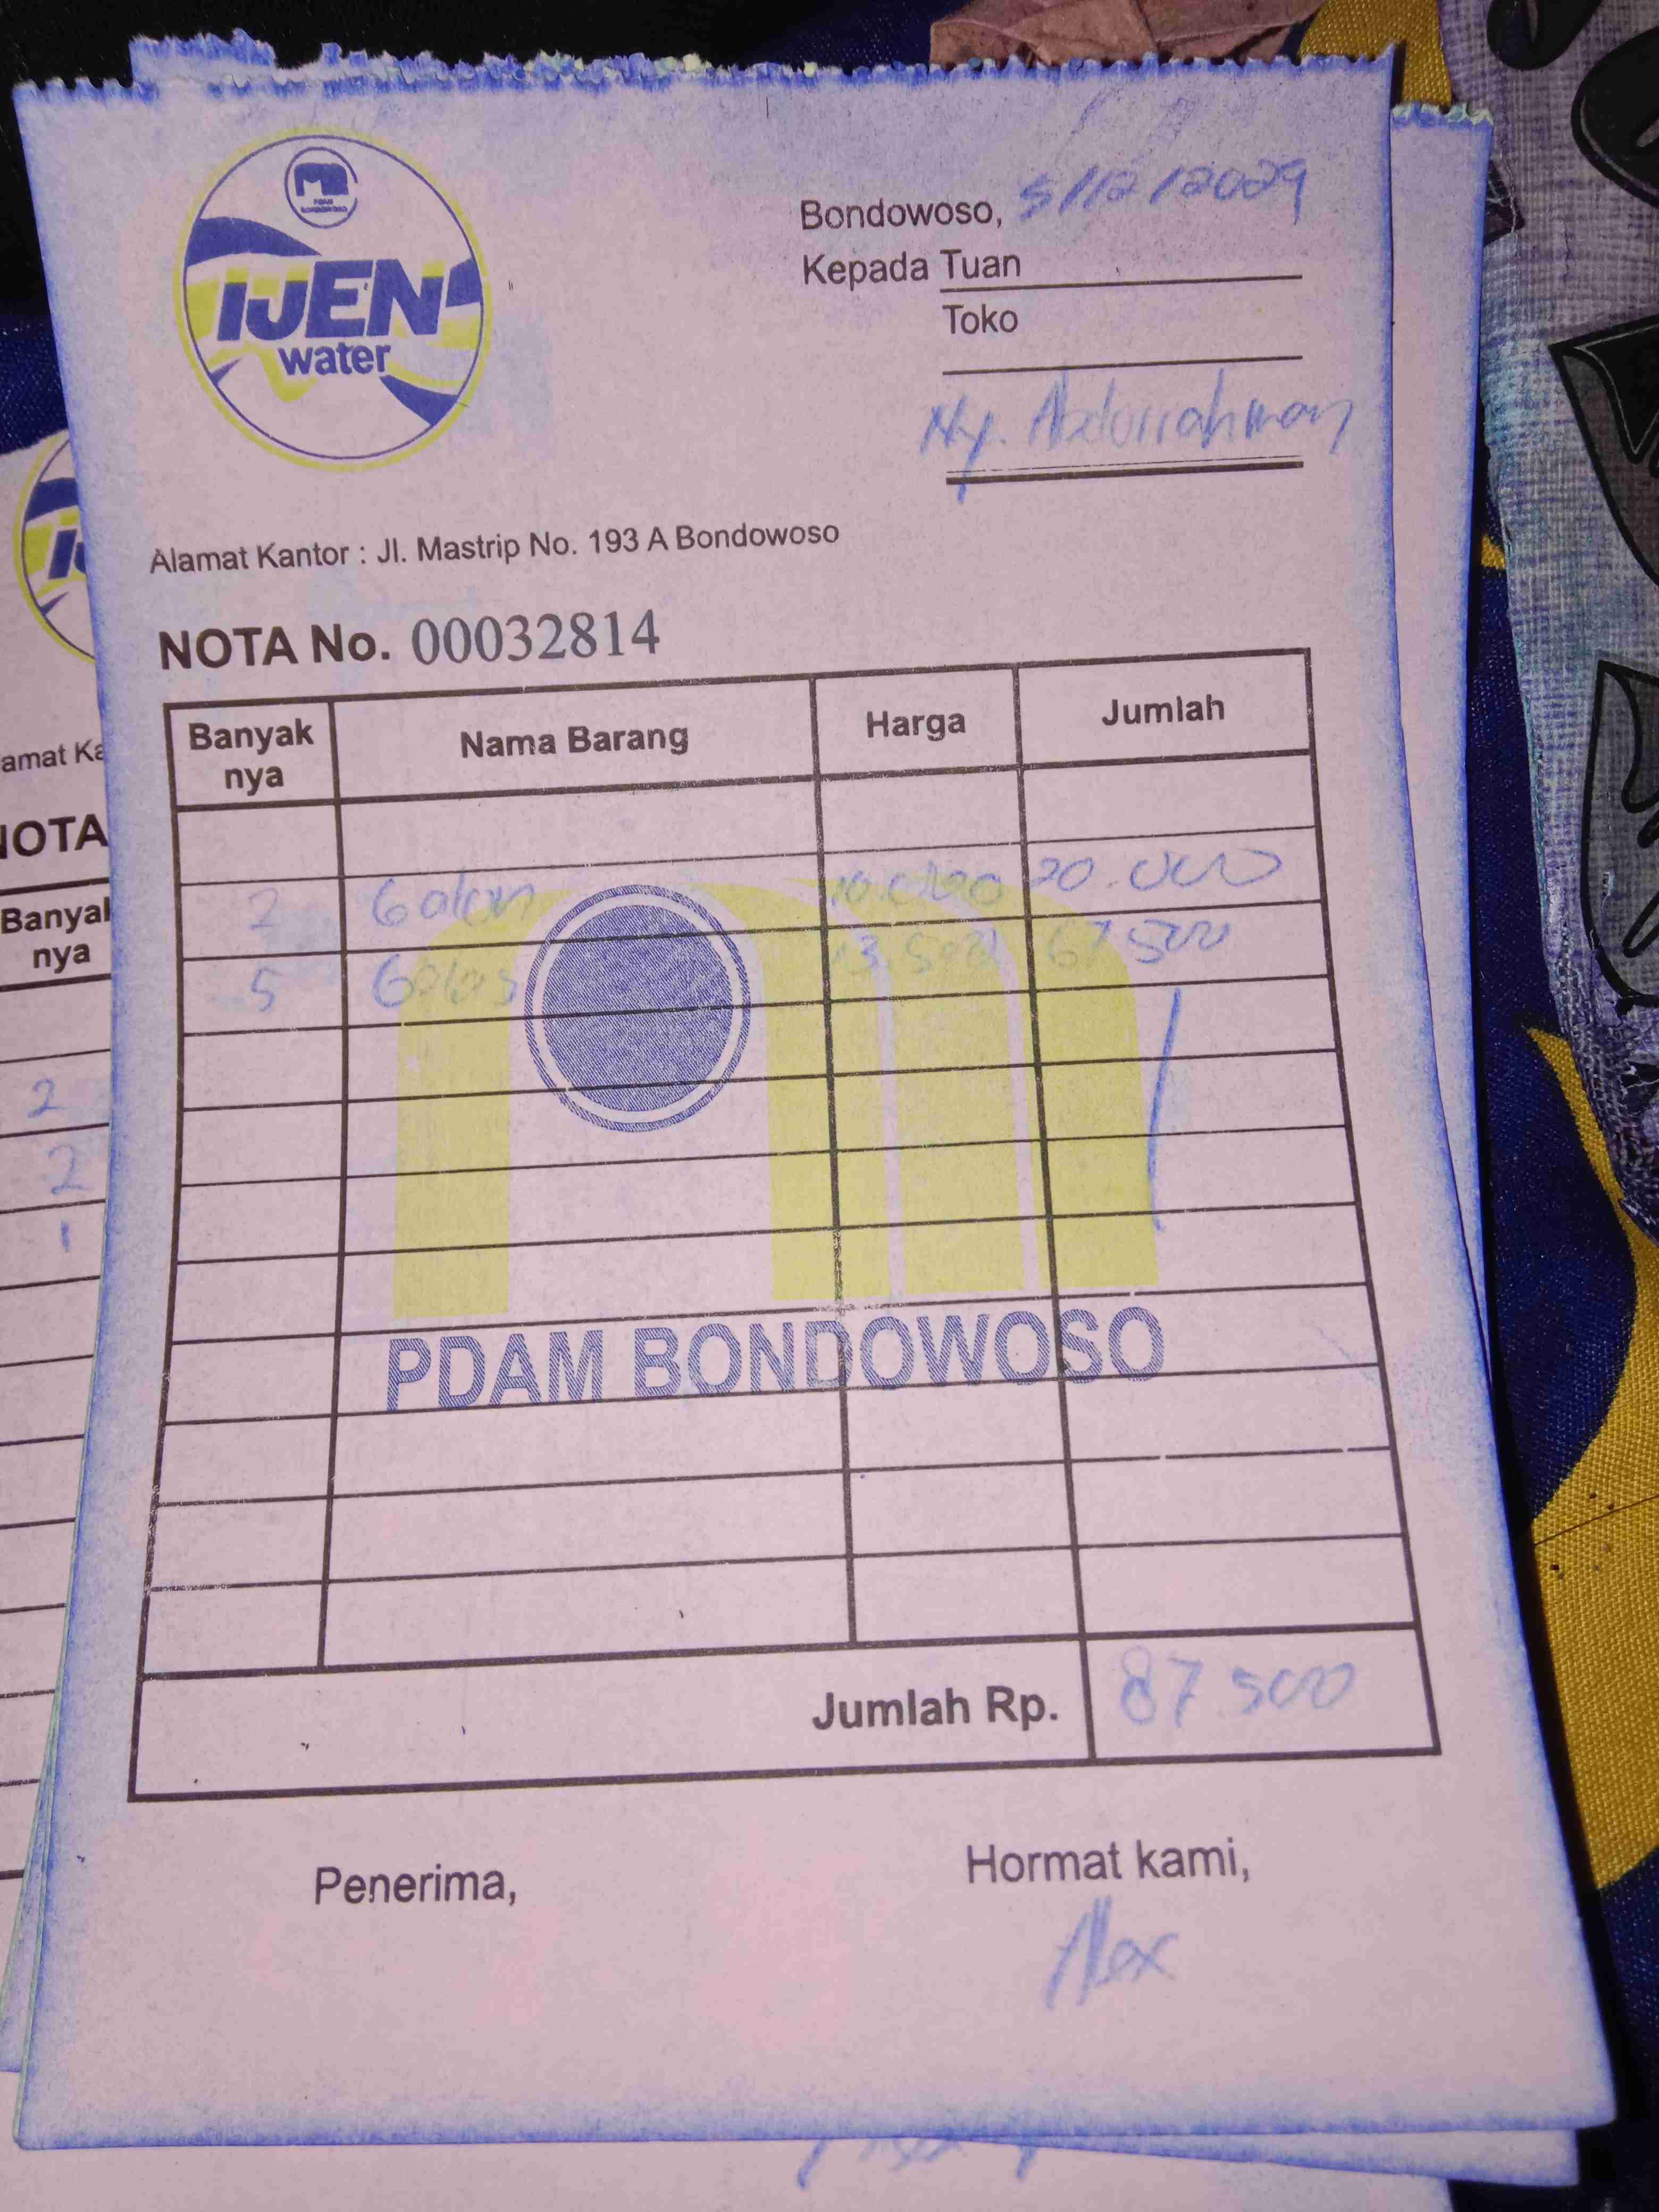 PDAM
BONDOWOSO
IJEN
water
Bondowoso, 5/12/2029
Kepada Tuan
Toko
Ny. Abdurrahman
Alamat Kantor : Jl. Mastrip No. 193 A Bondowoso
NOTA No. 00032814
Banyak nya Nama Barang Harga Jumlah
2 Galon 10.000 20.000
5 Gelas 13.500 67.500
PDAM BONDOWOSO
Jumlah Rp. 87.500
Penerima, Hormat kami,
Alex
amat Ka
NOTA
Banyak
nya
2
2
1